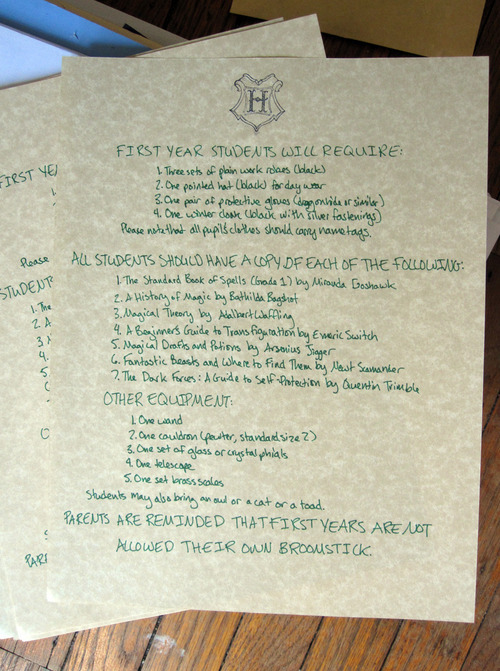 H
FIRST YEAR STUDENTS WILL REQUIRE:
1. Three sets of plain work robes (black)
2. One pointed hat (black) for day wear
3. One pair of protective gloves (dragonhide or similar)
4. One winter cloak (black with silver fastenings)
Please note that all pupil's clothes should carry name tags.
ALL STUDENTS SHOULD HAVE A COPY OF EACH OF THE FOLLOWING:
1. The Standard Book of Spells (Grade 1) by Miranda Goshawk
2. A History of Magic by Bathilda Bagshot
3. Magical Theory by Adalbert Waffling
4. A Beginner's Guide to Transfiguration by Emeric Switch
5. Magical Drafts and Potions by Arsenius Jigger
6. Fantastic Beasts and Where to Find Them by Newt Scamander
7. The Dark Forces: A Guide to Self-Protection by Quentin Trimble
OTHER EQUIPMENT:
1. One wand
2. One cauldron (pewter, standard size 2)
3. One set of glass or crystal phials
4. One telescope
5. One set brass scales
Students may also bring an owl or a cat or a toad.
PARENTS ARE REMINDED THAT FIRST YEARS ARE NOT
ALLOWED THEIR OWN BROOMSTICK.
FIRST YE
Please
STUDENT
1. The
2. A
3. M
4.
5.